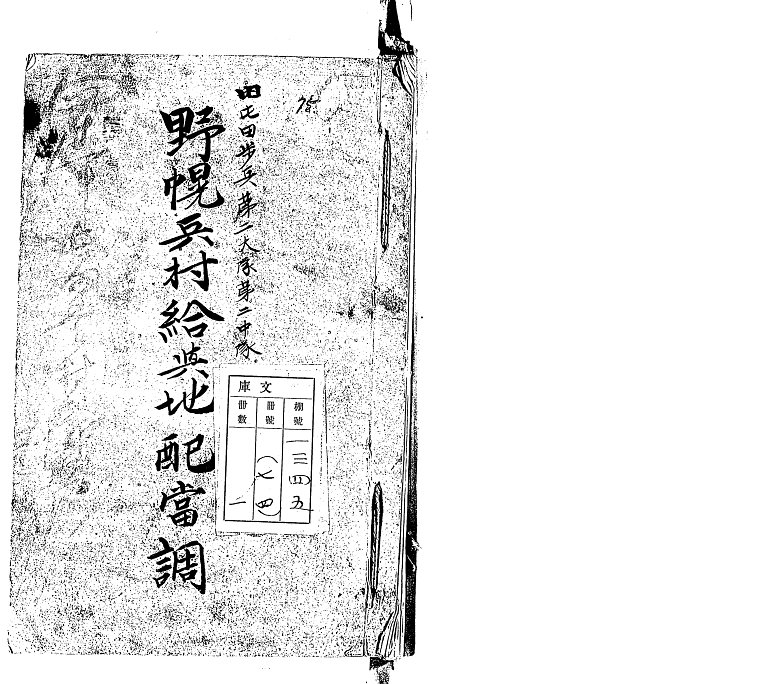 屯田歩兵第二大隊第二中隊
野幌兵村給與地配當調
文庫
棚號
一三四五
冊號
(七四)
冊數
二